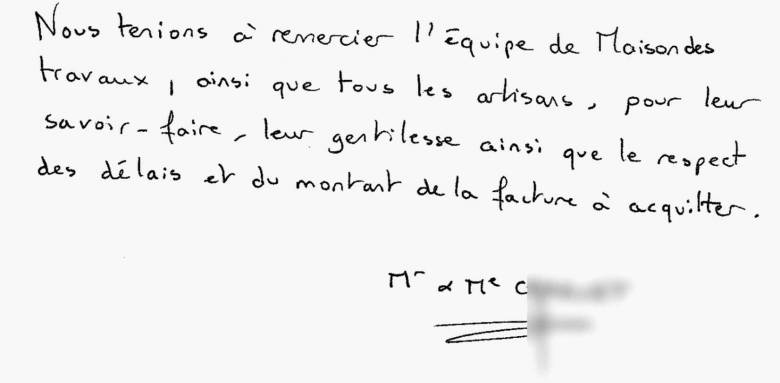 Nous tenions à remercier l'équipe de Maison des
travaux, ainsi que tous les artisans, pour leur
savoir-faire, leur gentilesse ainsi que le respect
des délais et du montant de la facture à acquitter.
Mr & Me C